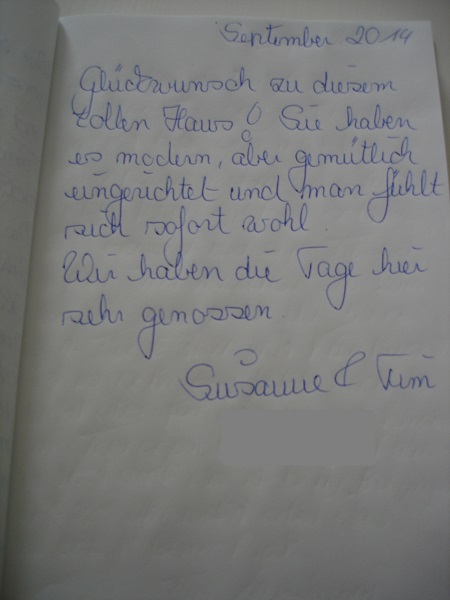 September 2014
Glückwunsch zu diesem
tollen Haus! Sie haben
es modern, aber gemütlich
eingerichtet und man fühlt
sich sofort wohl.
Wir haben die Tage hier
sehr genossen.
Susanne & Tim